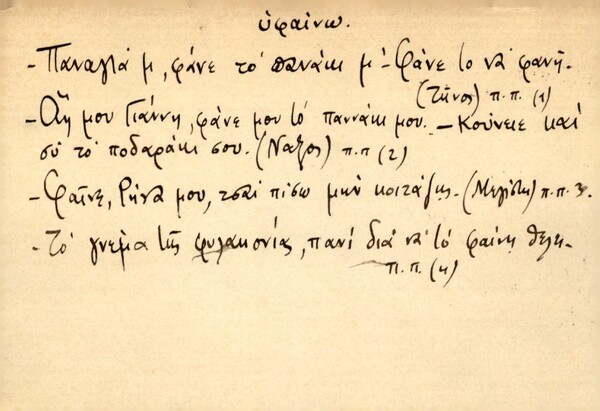 ὑφαίνω.
- Παναγιά μ, φάνε τὸ πανάκι μ' - Φάνε το νὰ φανῇ.
(Τῆνος) π.π. (1)
- Ἅη μου Γιάννη, φάνε μου τὸ παννάκι μου. - Κούνειε καὶ
σὺ τὸ ποδαράκι σου. (Νάξος) π.π (2)
- Φαῖνε, Ρήνα μου, τσαὶ πίσω μὴν κοιτάζῃς. (Μεγίστη) π.π. 3.
- Τὸ γνέμα τῆς φυλακονιᾶς, πανὶ διὰ νὰ τὸ φαίνῃ θέλει.
π.π. (4)